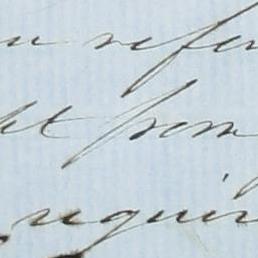 n refer
ht from
requir